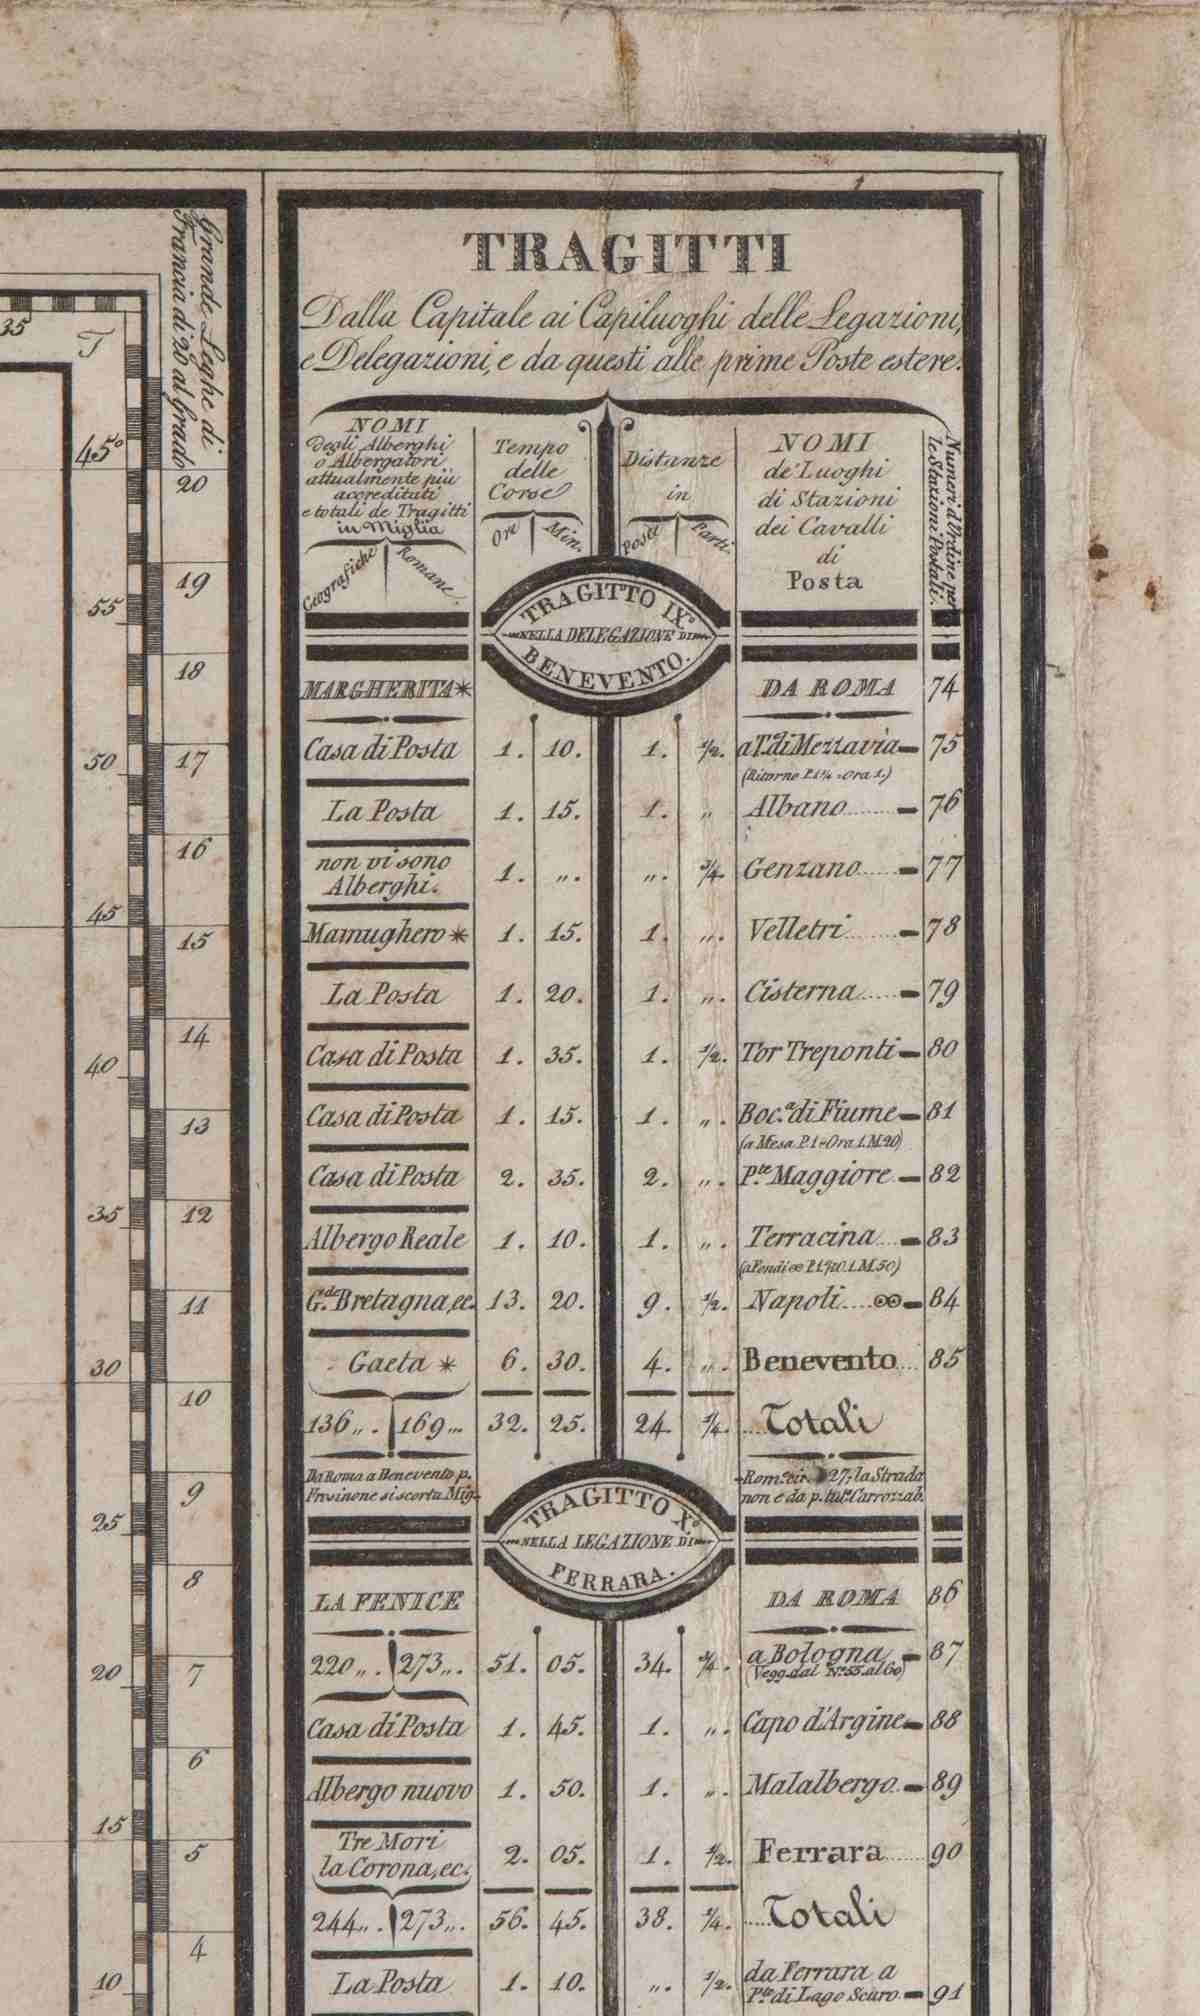 TRAGITTI
Dalla Capitale ai Capiluoghi delle Legazioni,
e Delegazioni, e da questi alle prime Poste estere.
NOMI
degli Alberghi
o Albergatori
attualmente più
accreditati
e totali de Tragitti
in Miglia
Geografiche Romane
Tempo
delle
Corse
Ore Min.
Distanze
in
Poste Parti.
NOMI
de' Luoghi
di Stazioni
dei Cavalli
di
Posta
Numeri d'Ordine per
le Stazioni Postali.
TRAGITTO IX.º
NELLA DELEGAZIONE DI
BENEVENTO.
MARGHERITA* DA ROMA 74
Casa di Posta 1. 10. 1. ½. a T. di Mezzavia 75
(Ritorno P. 1¼ = Ora 1.)
La Posta 1. 15. 1. „ Albano 76
non vi sono
Alberghi. 1. „. „. ¾. Genzano 77
Mamughero* 1. 15. 1. „. Velletri 78
La Posta 1. 20. 1. „. Cisterna 79
Casa di Posta 1. 35. 1. ½. Tor Treponti 80
Casa di Posta 1. 15. 1. „. Boc.ª di Fiume 81
(a Mesa P. 1 = Ora 1. M. 20)
Casa di Posta 2. 35. 2. „. P.te Maggiore 82
Albergo Reale 1. 10. 1. „. Terracina 83
G.de Bretagna, ec. 13. 20. 9. ½. Napoli 84
Gaeta * 6. 30. 4. „. Benevento 85
136 „. 169 „. 32. 25. 24. ¼. Totali
Da Roma a Benevento p.
Frosinone si scorta Mig.
27. la Strada
non è da p. tut.º Carrozzab.
TRAGITTO X.º
NELLA LEGAZIONE DI
FERRARA.
LA FENICE DA ROMA 86
220 „. 273 „. 51. 05. 34. ¾. a Bologna 87
(Vegg. dal N.º 55. al 60)
Casa di Posta 1. 45. 1. „. Capo d'Argine 88
Albergo nuovo 1. 50. 1. „. Malalbergo 89
Tre Mori
la Corona, ec. 2. 05. 1. ½. Ferrara 90
244 „. 273 „. 56. 45. 38. ¼. Totali
La Posta 1. 10. „. ½. da Ferrara a
P.te di Lago Scuro 91
Grande Leghe di
Francia di 20 al Grado
35
T
45º
20
19
55
18
50
17
16
45
15
14
40
13
35
12
11
30
10
9
25
8
20
7
6
15
5
4
10